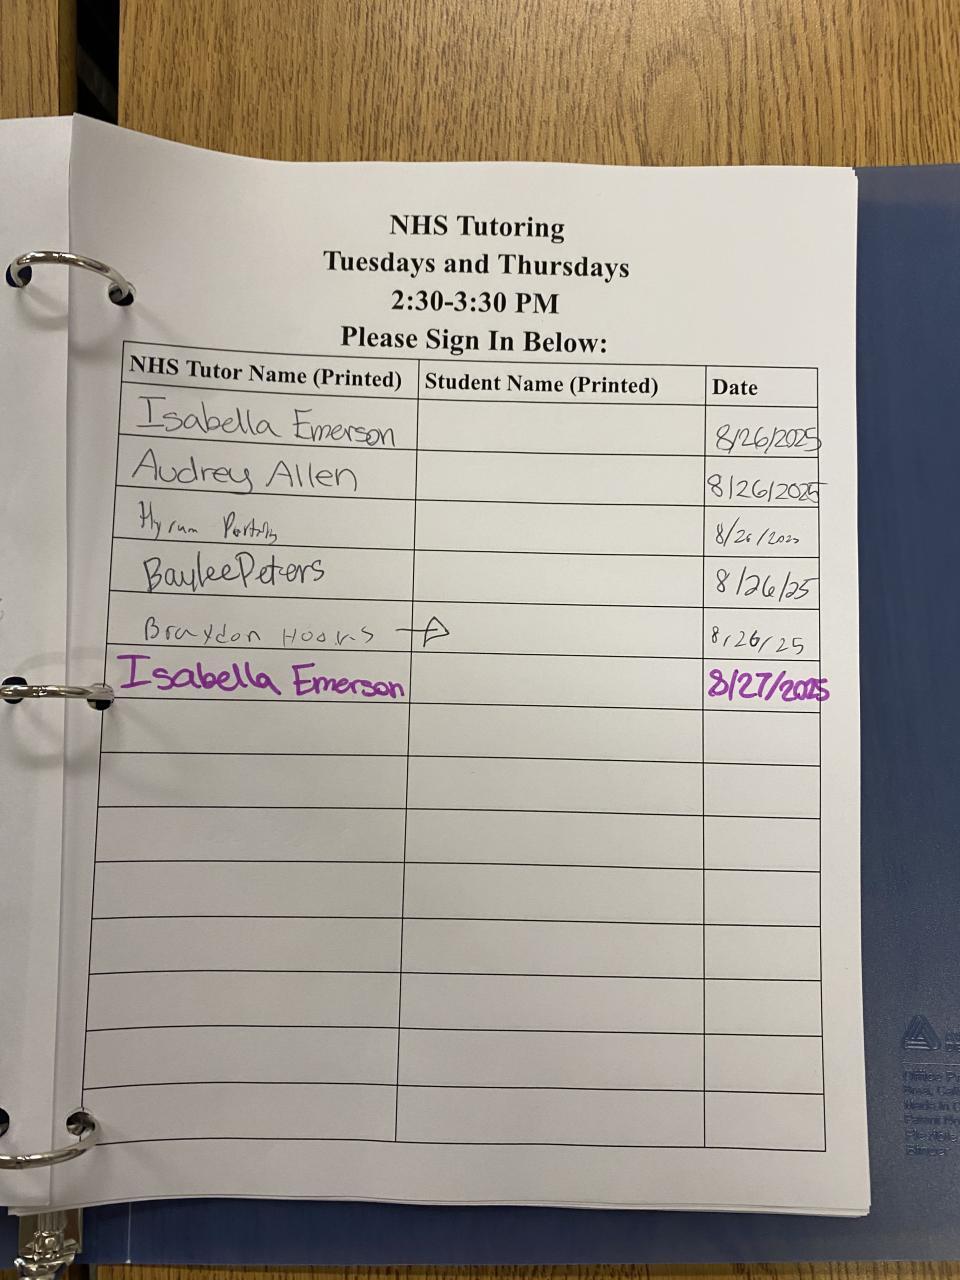 NHS Tutoring
Tuesdays and Thursdays
2:30-3:30 PM
Please Sign In Below:
NHS Tutor Name (Printed) Student Name (Printed) Date
Isabella Emerson 8/26/2025
Audrey Allen 8/26/2025
Hyrum 8/26/2025
Baylee Peters 8/26/25
Braydon 8/26/25
Isabella Emerson 8/27/2025